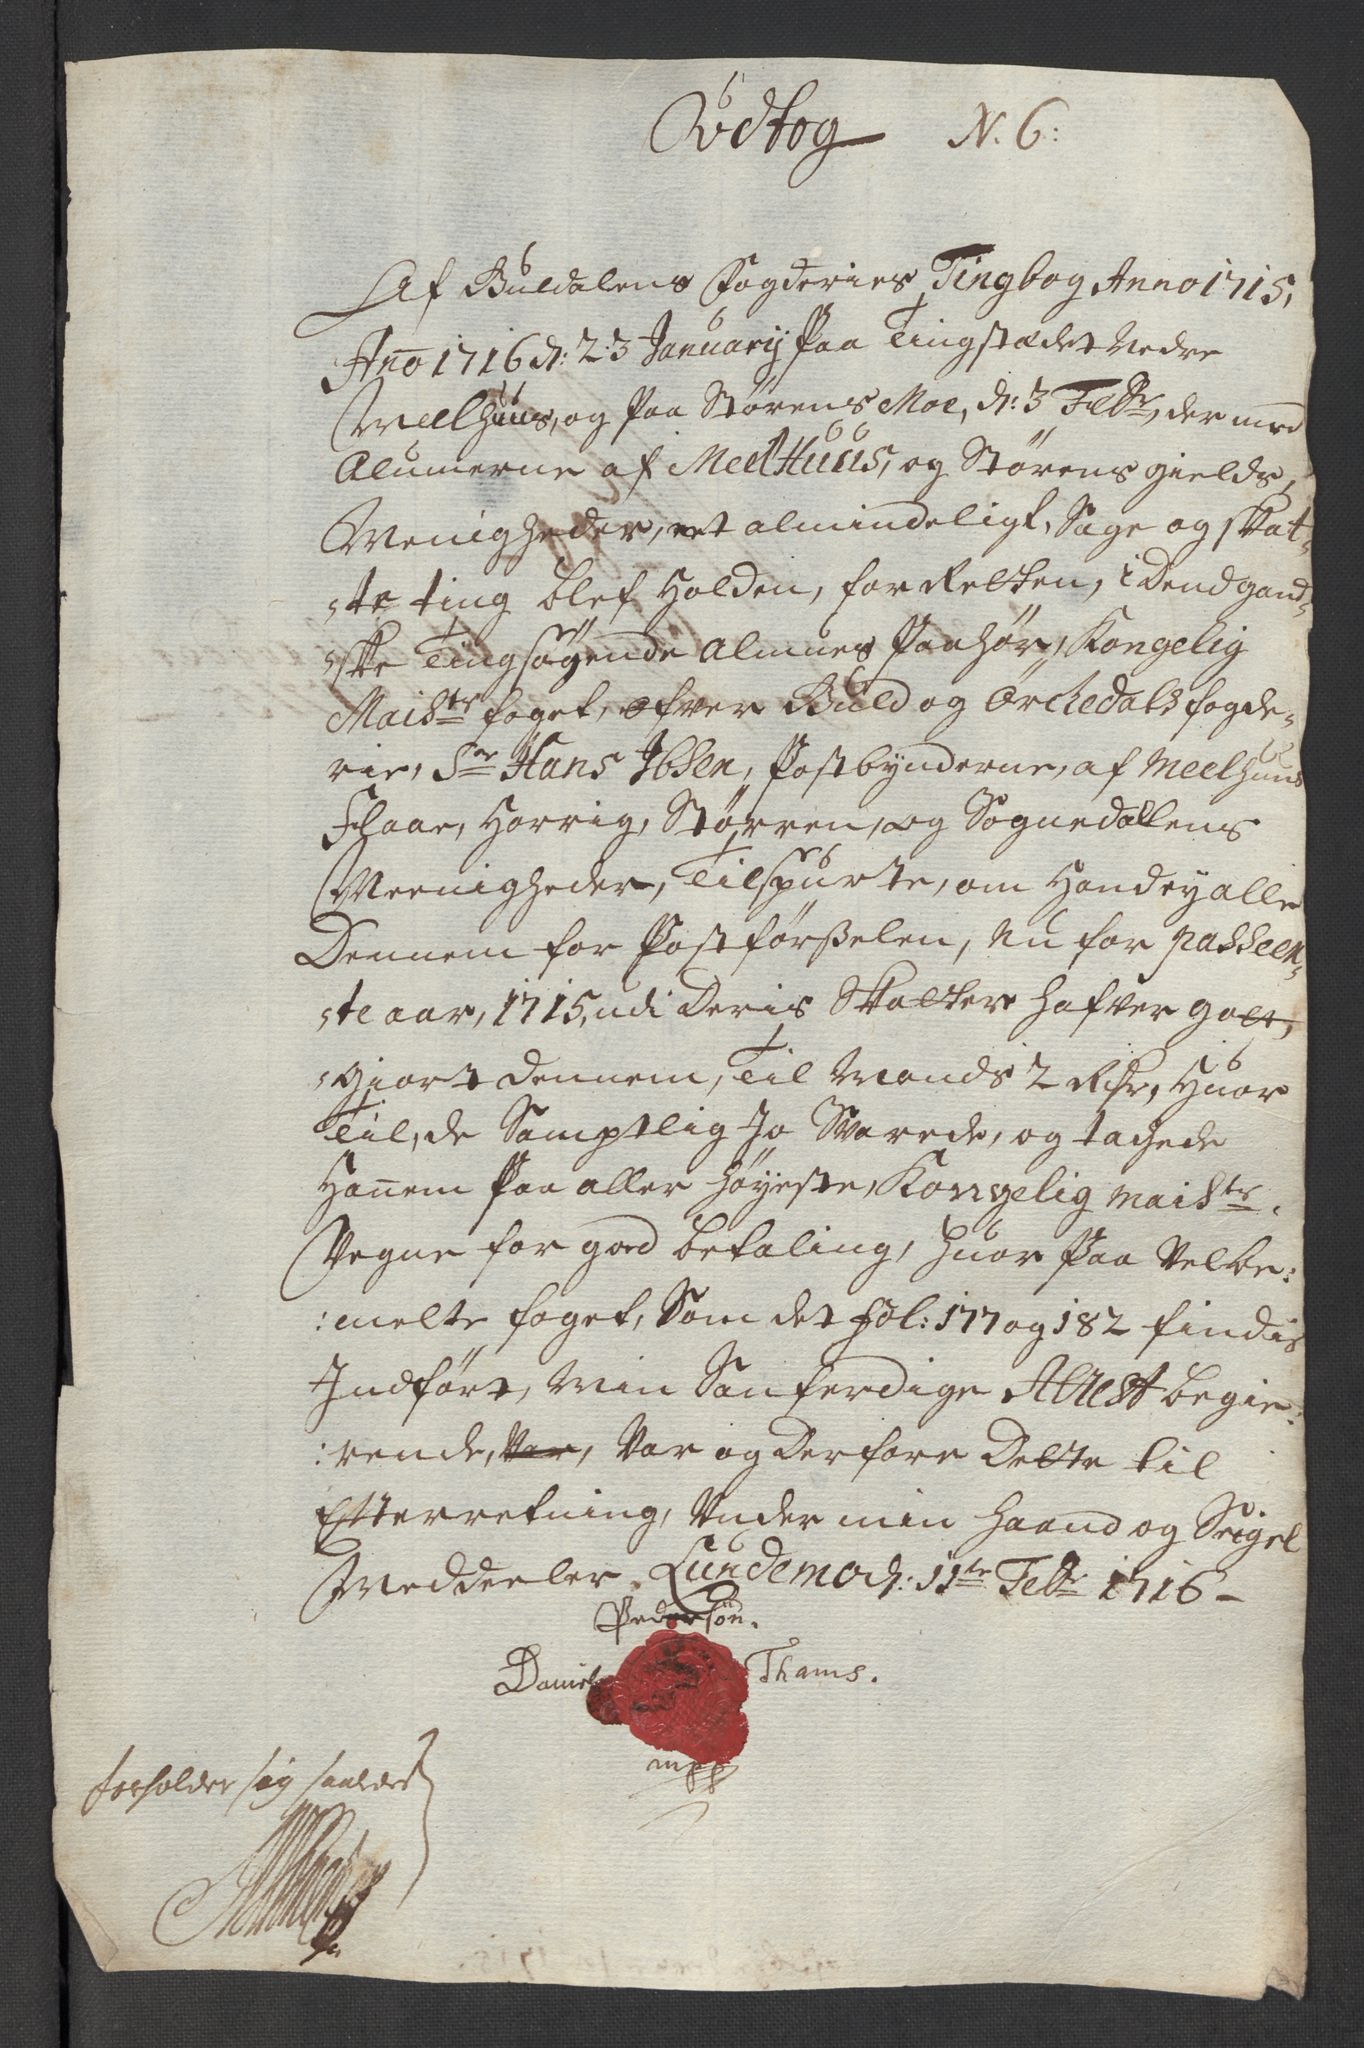 Udtog N. 6:
Af Guldalens Fogderies Tingbog Anno 1715,
Anno 1716 d: 23 Januarij Paa Tingstædet Nedre
Meelhuus, og Paa Størens Moe, d: 3 Febr, der med
Alumerne af Meelhuus, og Størens gields,
Menigheder, et almindeligt, Sage og skat-
-te ting blef Holden, for Retten, i Dend gand-
-ske Tingsøgende Almues Paahør, Kongelig
Maijsts foget, ofver Guld og Orchedals fogde-
rie, Sr Hans Ibsen, Postbønderne, af Meelhuus
Flaae, Horrig, Størren, og Sognedallens
Meenigheder, Tilspurte, om Hand ey alle
Dennem for Postførselen, Nu for passeer-
-te aar, 1715, udi Deris Skatter hafver godt,
-giort Dennem, Til Mands 2 Rdr, Huor
Til, de Samptlig Jo Svarede, og tachede
Hanem Paa aller høyeste, Kongelig Maijsts.
Vegne for goed betaling, huor Paa Velbe:
:melte foget, Som det fol: 177 og 182 findis
Indført, Min Sanferdige Attest begie:
:rende, Var, Var og Derfore Dette til
Efterretning, Under min Haand og Seigel
Meddeeler. Lundemo d: 11te Febr 1716 -
Pedersøn.
Daniel Thams.
mpp
forholder sig saaledes